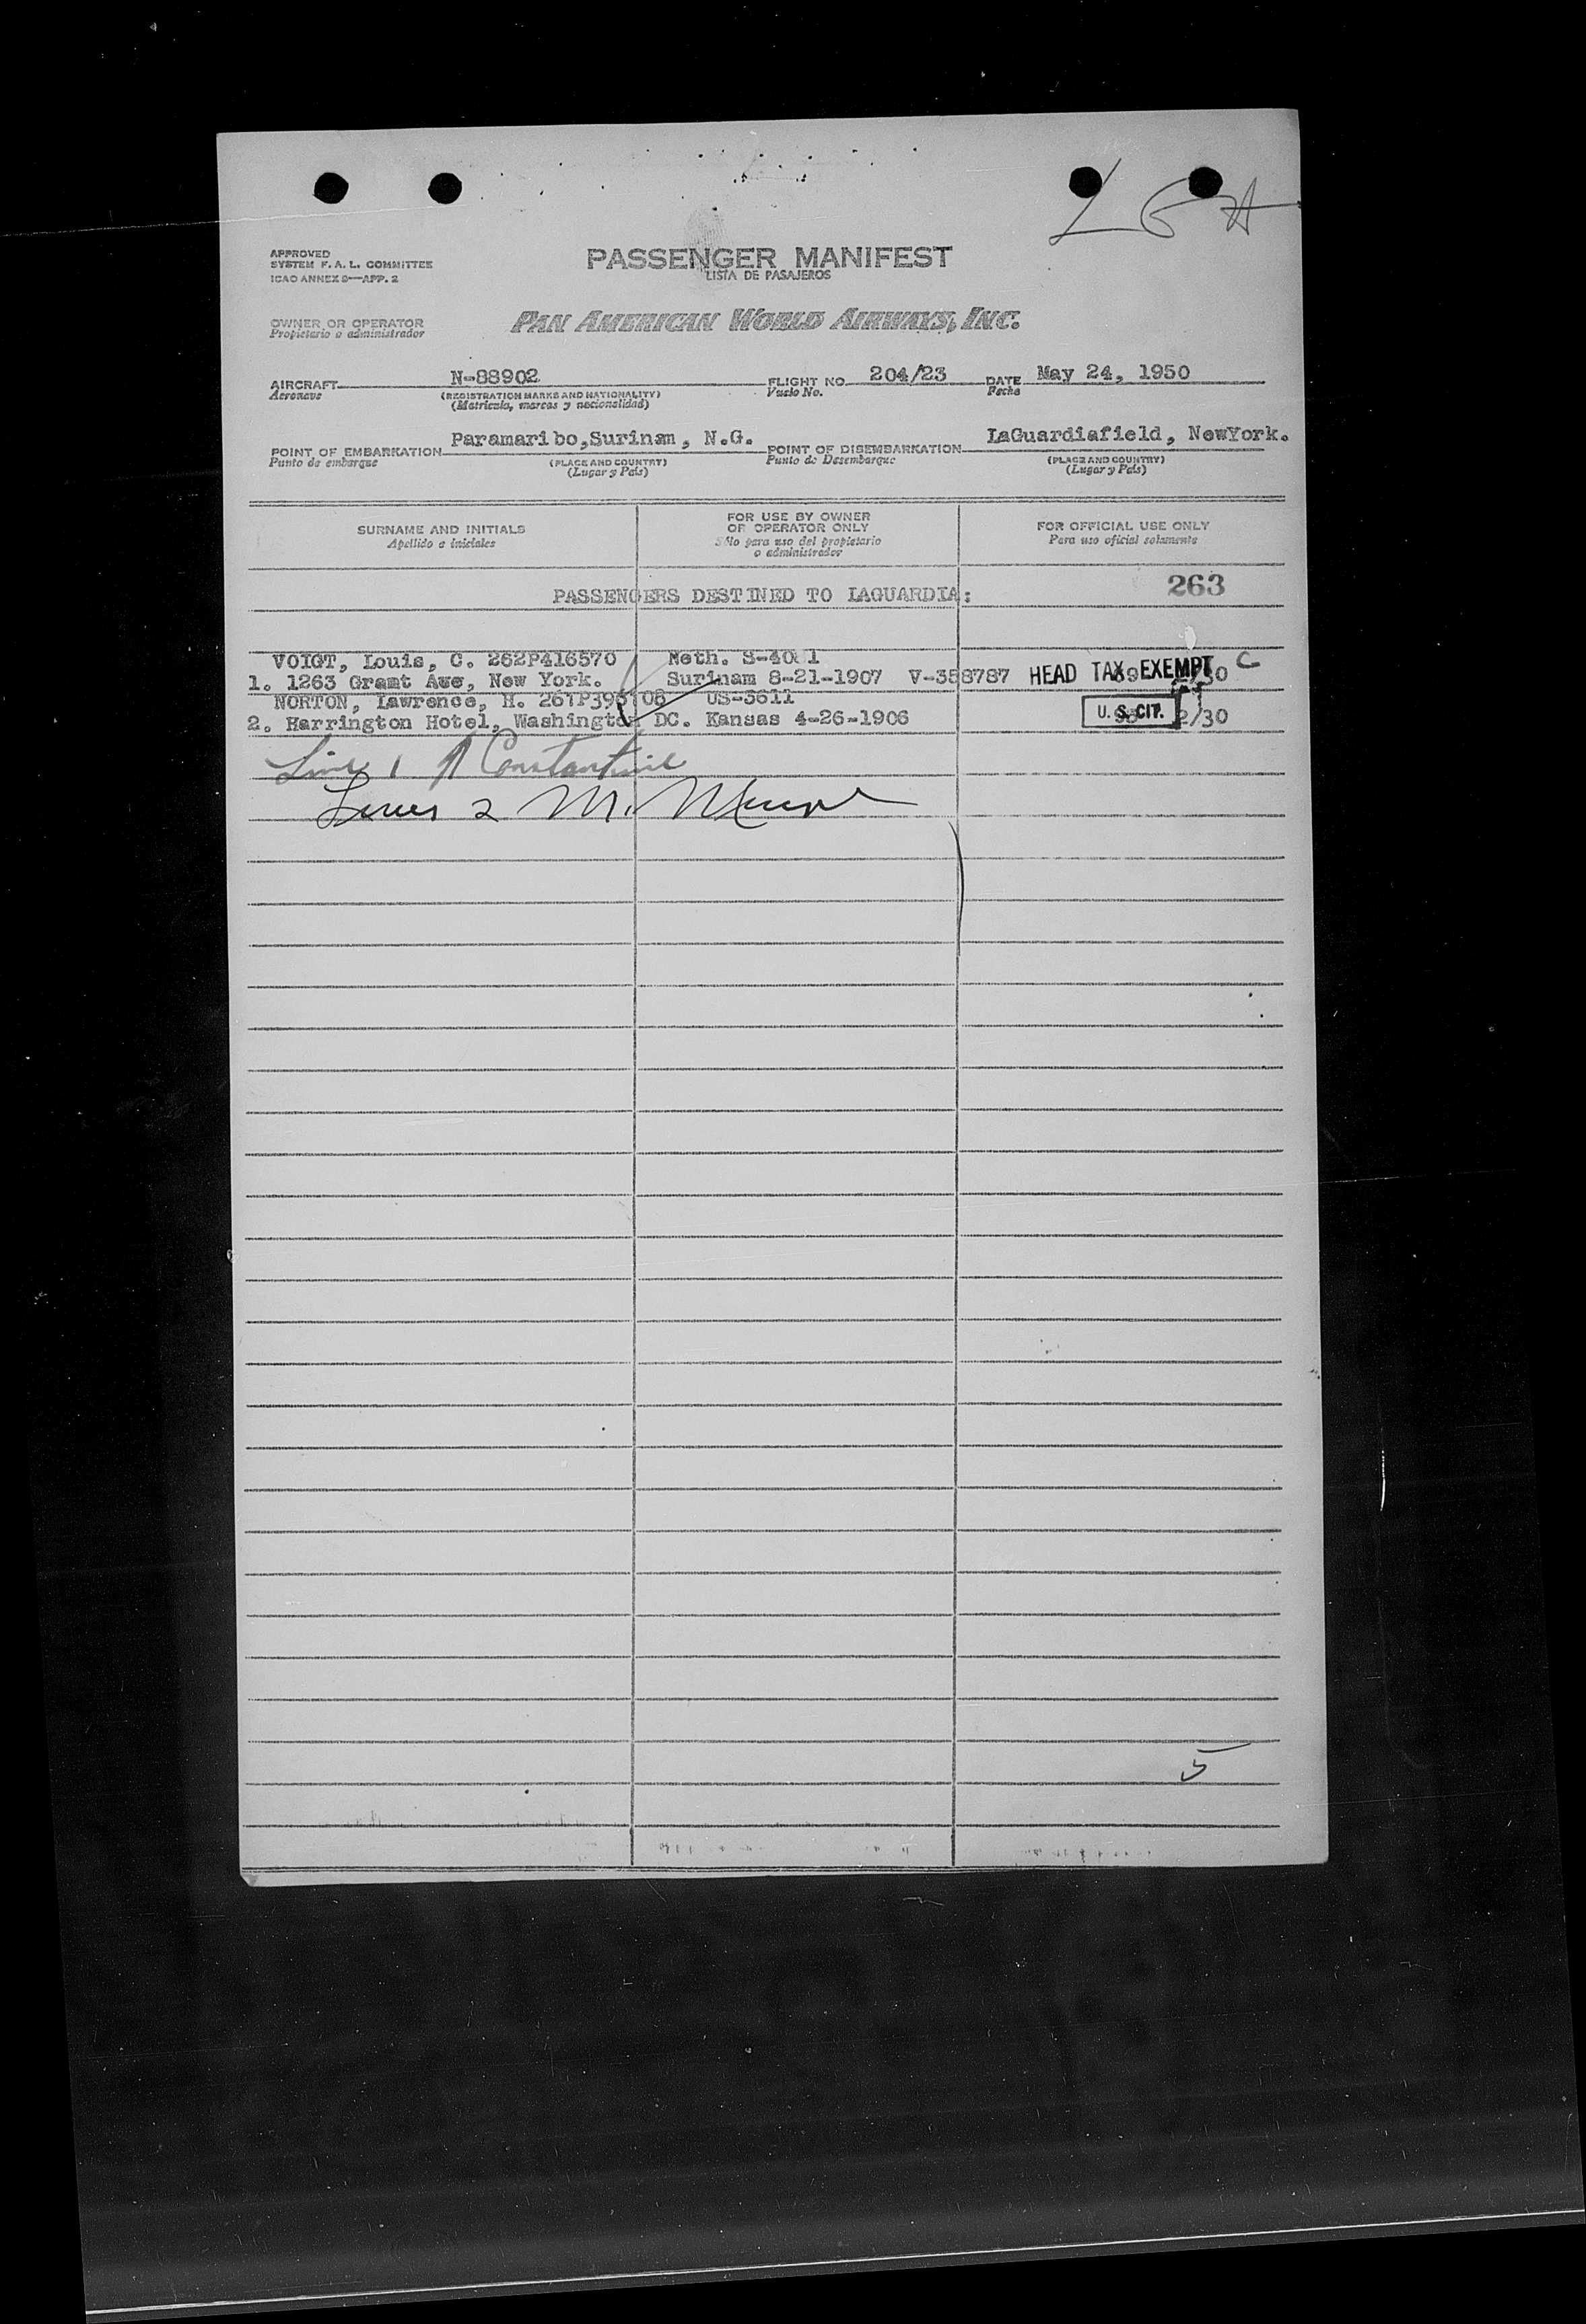 L G A
APPROVED
SYSTEM F. A. L. COMMITTEE
ICAO ANNEX 9—APP. 2
PASSENGER MANIFEST
LISTA DE PASAJEROS
OWNER OR OPERATOR
Propietario o administrador
PAN AMERICAN WORLD AIRWAYS, INC.
AIRCRAFT N-88902 FLIGHT NO. 204/23 DATE May 24, 1950
Aeronave (REGISTRATION MARKS AND NATIONALITY) Vuelo No. Fecha
(Matrícula, marcas y nacionalidad)
POINT OF EMBARKATION Paramaribo,Surinam, N.G. POINT OF DISEMBARKATION LaGuardiafield, NewYork.
Punto de embarque (PLACE AND COUNTRY) Punto de Desembarque (PLACE AND COUNTRY)
(Lugar y País) (Lugar y País)
SURNAME AND INITIALS
Apellido e iniciales
FOR USE BY OWNER
OR OPERATOR ONLY
Sólo para uso del propietario
o administrador
FOR OFFICIAL USE ONLY
Para uso oficial solamente
PASSENGERS DESTINED TO LAGUARDIA: 263
VOIGT, Louis, C. 262P416570 Neth.
1. 1263 Grant Ave, New York. Surinam 8-21-1907 V-358787 HEAD TAX EXEMPT C
NORTON, Lawrence, H. US-3611
2. Harrington Hotel, Washington DC. Kansas 4-26-1906 U. S. CIT. 2/30
Line 1 Constantine
Lines 2 M.
5